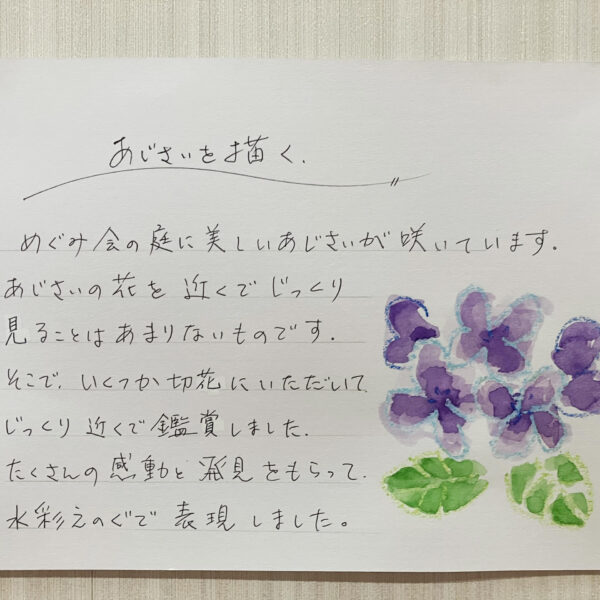 あじさいを描く.
めぐみ会の庭に美しいあじさいが咲いています.
あじさいの花を近くでじっくり
見ることはあまりないものです.
そこで、いくつか切花にいただいて
じっくり近くで鑑賞しました.
たくさんの感動と発見をもらって.
水彩えのぐで表現しました。